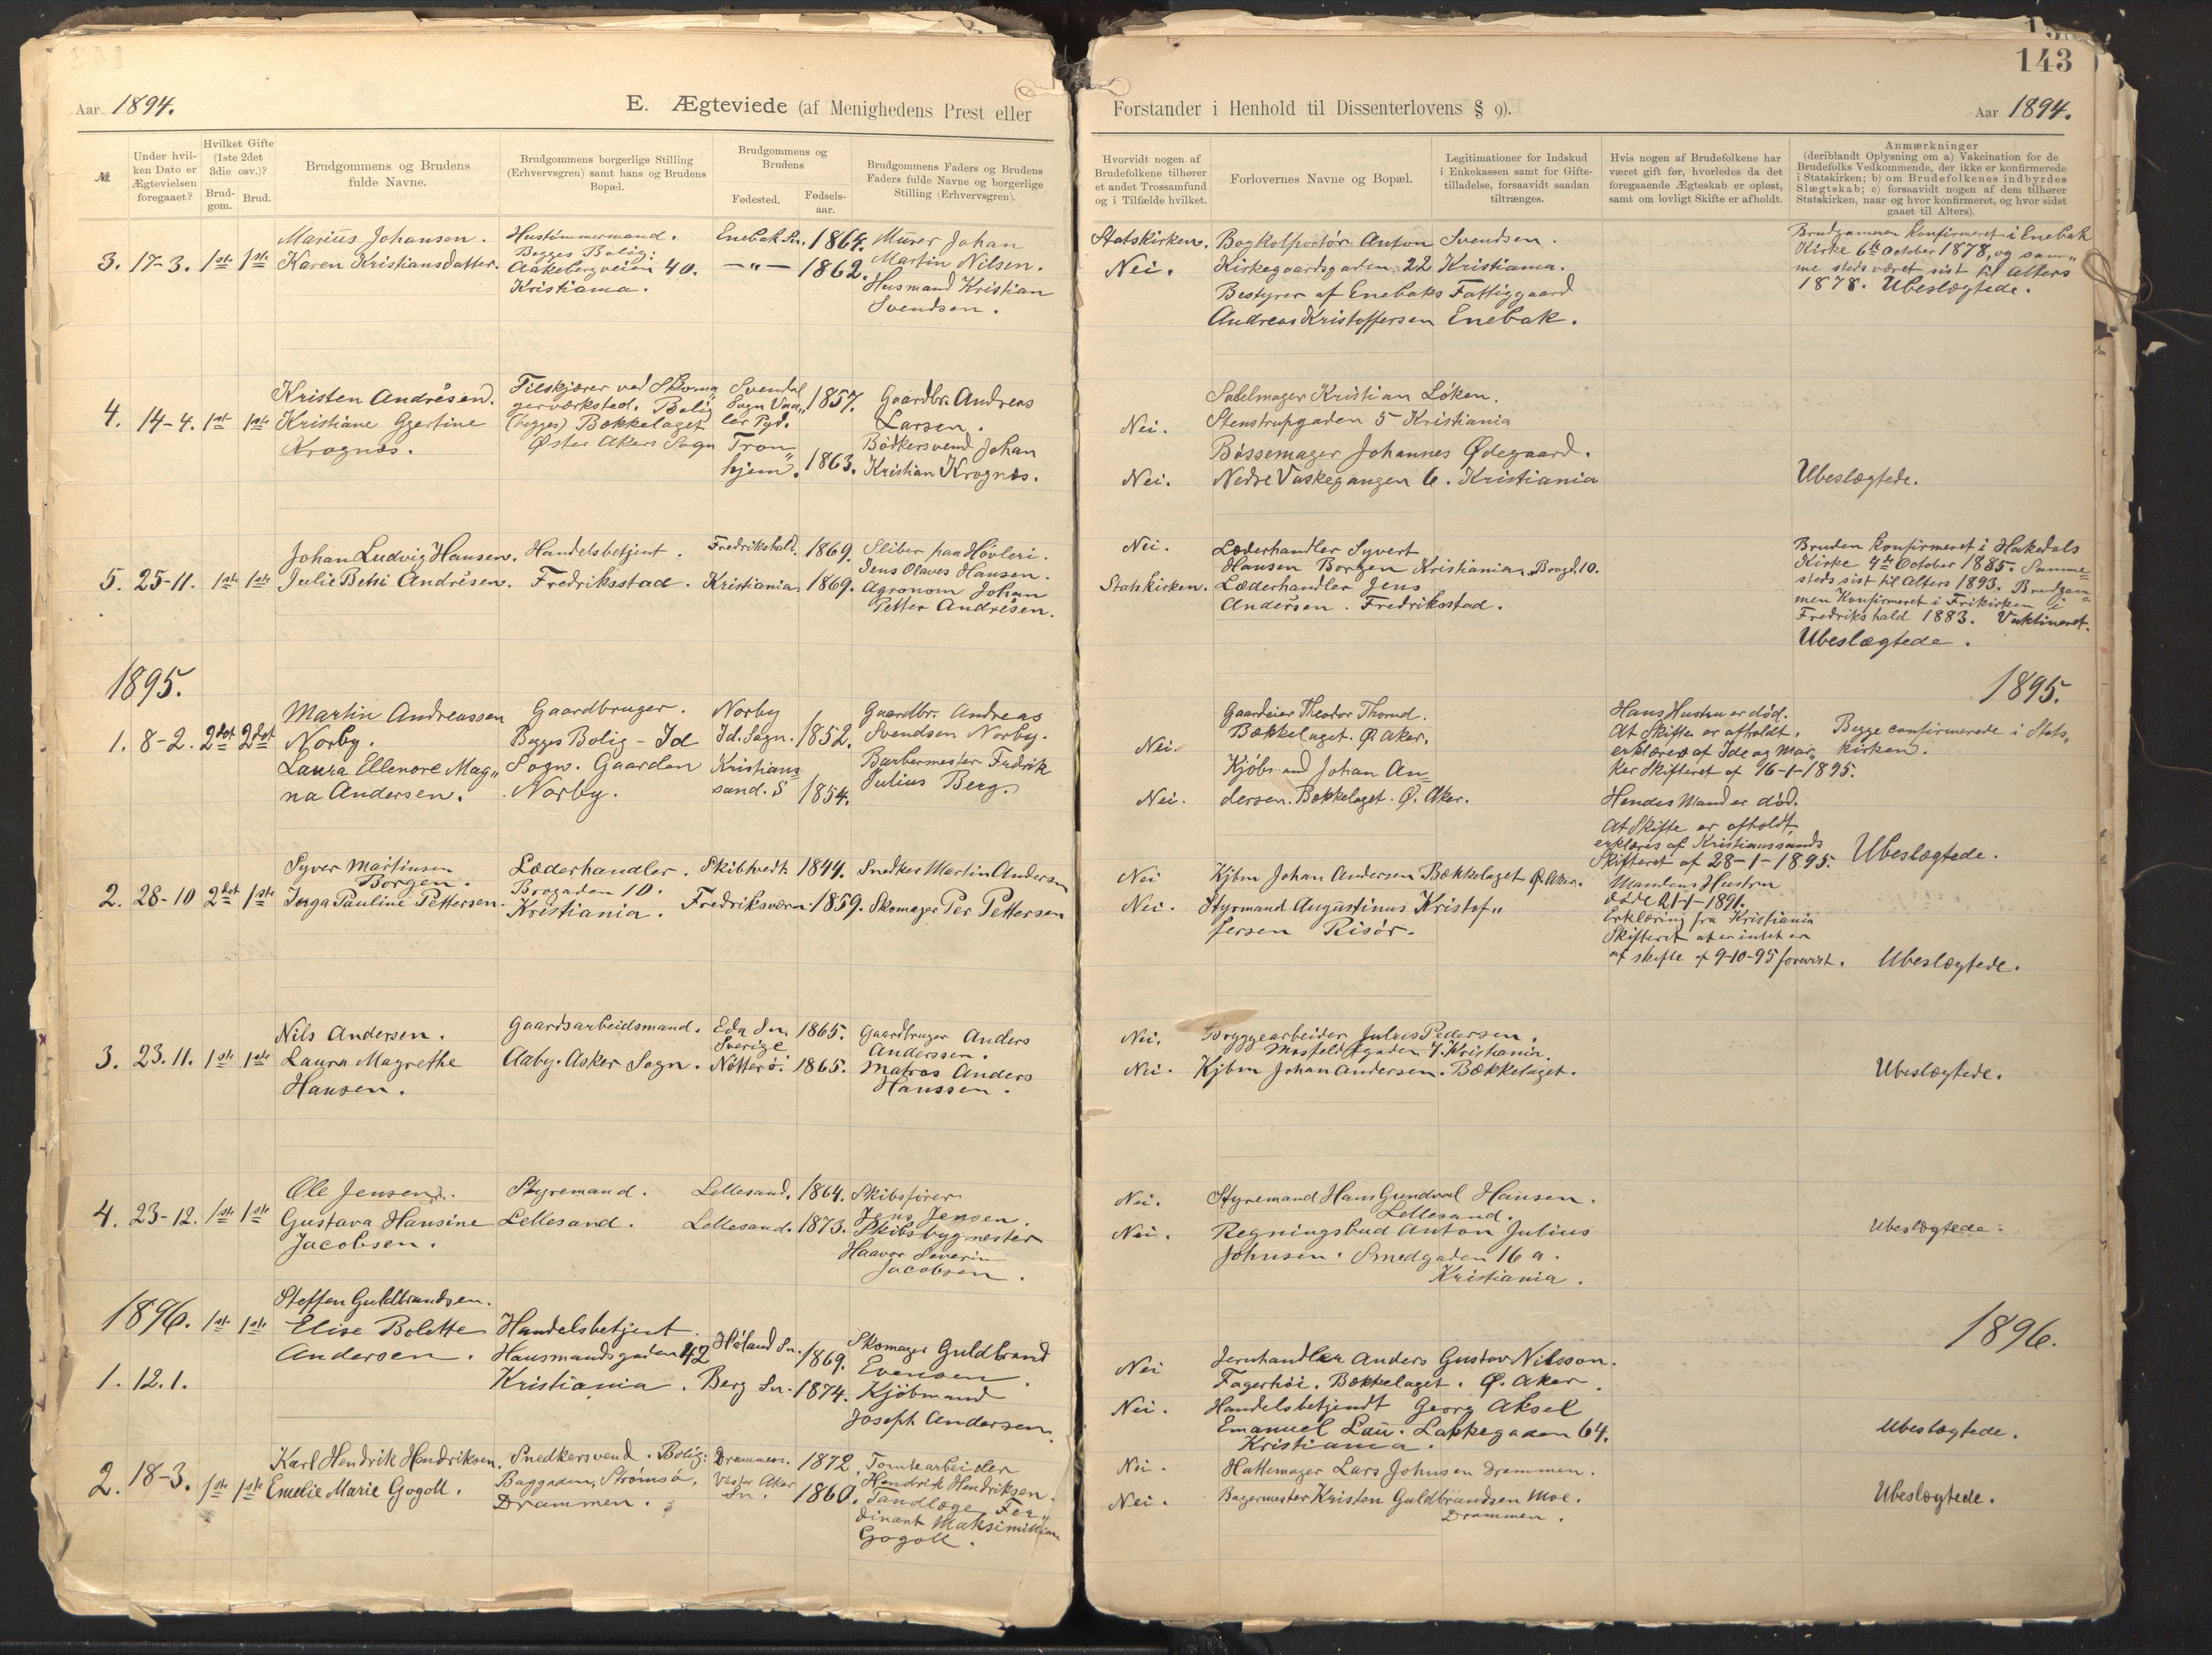 143
Aar 1894.
E. Ægteviede (af Menighedens Prest eller
Forstander i Henhold til Dissenterlovens § 9).
Aar 1894.
№
Under hvil-
ken Dato er
Ægtevielsen
foregaaet?
Hvilket Gifte
(1ste 2det
3die osv.)?
Brud-
gom.
Brud.
Brudgommens og Brudens
fulde Navne.
Brudgommens borgerlige Stilling
(Erhvervsgren) samt hans og Brudens
Bopæl.
Brudgommens og
Brudens
Fødested.
Fødsels-
aar.
Brudgommens Faders og Brudens
Faders fulde Navne og borgerlige
Stilling (Erhvervsgren).
Hvorvidt nogen af
Brudefolkene tilhører
et andet Trossamfund
og i Tilfælde hvilket.
Forlovernes Navne og Bopæl.
Legitimationer for Indskud
i Enkekassen samt for Gifte-
tilladelse, forsaavidt saadan
tiltrænges.
Hvis nogen af Brudefolkene har
været gift før, hvorledes da det
foregaaende Ægteskab er opløst,
samt om lovligt Skifte er afholdt.
Anmærkninger
(deriblandt Oplysning om a) Vakcination for de
Brudefolks Vedkommende, der ikke er konfirmerede
i Statskirken; b) om Brudefolkenes indbyrdes
Slægtskab; c) forsaavidt nogen af dem tilhører
Statskirken, naar og hvor konfirmeret, og hvor sidst
gaaet til Alters).
3. 17-3. 1ste 1ste
Marius Johansen.
Karen Kristiansdatter.
Hustømmermand.
Begges Bolig:
Aakebergveien 40.
Kristiania.
Enebak Sn. 1864.
—"— 1862.
Murer Johan
Martin Nilsen.
Husmand Kristian
Svendsen.
Statskirken.
Nei.
Bogkolportør Anton Svendsen.
Kirkegaardsgaden 22 Kristiania.
Bestyrer af Enebaks Fattiggaard
Andreas Kristoffersen Enebak.
Brudgommen konfirmeret i Enebak
Kirke 6te October 1878, og sam„
me steds været sist til Alters
1878. Ubeslægtede.
4. 14-4. 1ste 1ste
Kristen Andrésen.
Kristiane Gjertine
Krognæs.
Filskjærer ved
gerværksted. Bolig
(begges) Bækkelaget
Øster Akers Sogn
Svendal
Sogn Vaa„
ler Pgd.
Tron„
hjem.
1857.
1863.
Gaardbr. Andreas
Larsen.
Bødkersvend Johan
Kristian Krognæs.
Nei.
Nei.
Sadelmager Kristian Løken.
Stenstrupgaden 5 Kristiania
Bøssemager Johannes Ødegaard.
Nedre Vaskegangen 6. Kristiania
Ubeslægtede.
5. 25-11. 1ste 1ste
Johan Ludvig Hansen.
Julie Betsi Andrésen.
Handelsbetjent.
Fredriksstad.
Fredrikshald. 1869.
Kristiania. 1869.
Sliber paa Høvleri.
Jens Olaves Hansen.
Agronom Johan
Petter Andrésen.
Nei.
Statskirken.
Læderhandler Syvert
Hansen Borgen Kristiania. Brogd. 10.
Læderhandler Jens
Andersen. Fredriksstad.
Bruden konfirmeret i Hakedals
Kirke 4de October 1885. Samme=
steds sist til Alters 1893. Brudgom=
men Konfirmeret i Frikirken i
Fredrikshald 1883. Vaktineret.
Ubeslægtede.
1895.
1895.
1. 8-2. 2det 2det
Martin Andreassen
Norby.
Laura Ellenore Mag„
na Andersen.
Gaardbruger.
Begges Bolig - Id
Sogn. Gaarden
Norby.
Norby
Id. Sogn. 1852.
Kristians=
sand. S 1854.
Gaardbr. Andreas
Svendsen Norby.
Barbermester Fredrik
Julius Berg.
Nei.
Nei.
Gaardeier Theodor Thorud.
Bækkelaget. Ø. Aker.
Kjøbmand Johan An=
dersen. Bækkelaget. Ø. Aker.
Hans Hustru er død.
At Skifte er afholdt,
erklæres af Ide og Mar„
ker Skifteret af 16-1-1895.
Hendes Mand er død.
At Skifte er afholdt,
erklæres af Kristianssands
Skifteret af 28-1-1895.
Begge confirmerede i Stats„
kirken.
Ubeslægtede.
2. 28-10 2det 1ste
Syver Martinsen
Borgen.
Inga Pauline Pettersen.
Læderhandler.
Brogaden 10.
Kristiania.
Skibtvedt. 1844.
Fredriksværn. 1859.
Snedker Martin Andersen
Skomager Per Pettersen
Nei
Nei.
Kjbm Johan Andersen Bækkelaget Ø. Aker.
Styrmand Augustinus Kristof„
fersen Risør.
Mandens Hustru
døde
Erklæring fra Kristiania
Skifteret at er intet er
at skifte af 9-10-95 forevist.
Ubeslægtede.
3. 23.11. 1ste 1ste
Nils Andersen.
Laura Magrethe
Hansen.
Gaardsarbeidsmand.
Aaby. Asker Sogn.
Eda Sn. 1865.
Sverige
Nøtterø. 1865.
Gaardbruger Anders
Anderssen.
Matros Anders
Hanssen.
Nei.
Nei.
Bryggearbeider Julius Pedersen.
7. Kristiania.
Kjbm Johan Andersen. Bækkelaget.
Ubeslægtede.
4. 23-12. 1ste 1ste
Ole Jensen.
Gustava Hansine
Jacobsen.
Styremand.
Lellesand.
Lellesand. 1864.
Lellesand. 1873.
Skibsfører
Jens Jensen.
Skibsbygmester
Haavor Severin
Jacobsen.
Nei.
Nei.
Styremand Hans Gundval Hansen.
Lellesand.
Regningsbud Anton Julius
Johnsen. Smedgaden 16 a.
Kristiania.
Ubeslægtede.
1896. 1ste 1ste
1896.
1. 12.1.
Steffen Guldbrandsen.
Elise Bolette
Andersen.
Handelsbetjent
Hausmandsgaden 42
Kristiania.
Høland Sn. 1869.
Berg Sn. 1874.
Skomager Guldbrand
Evensen.
Kjøbmand
Joseph Andersen.
Nei
Nei.
Jernhandler Anders Gustav Nilsson.
Fagerhøi. Bækkelaget. Ø. Aker.
Handelsbetjendt Georg Aksel
Emanuel Lau. Lakkegaden 64.
Kristiania.
Ubeslægtede.
2. 18-3. 1ste 1ste
Karl Hendrik Hendriksen.
Emelie Marie Gogoll.
Snedkersvend. Bolig:
Baggaden, Strømsø.
Drammen.
Drammen. 1872
Vester Aker
Sn. 1860.
Tomtearbeider
Hendrik Hendriksen.
Tandlæge Fer„
dinant Maksimillian
Gogoll.
Nei.
Nei.
Hattemager Lars Johnsen Drammen.
Bagermester Kristen Guldbrandsen Moe.
Drammen.
Ubeslægtede.